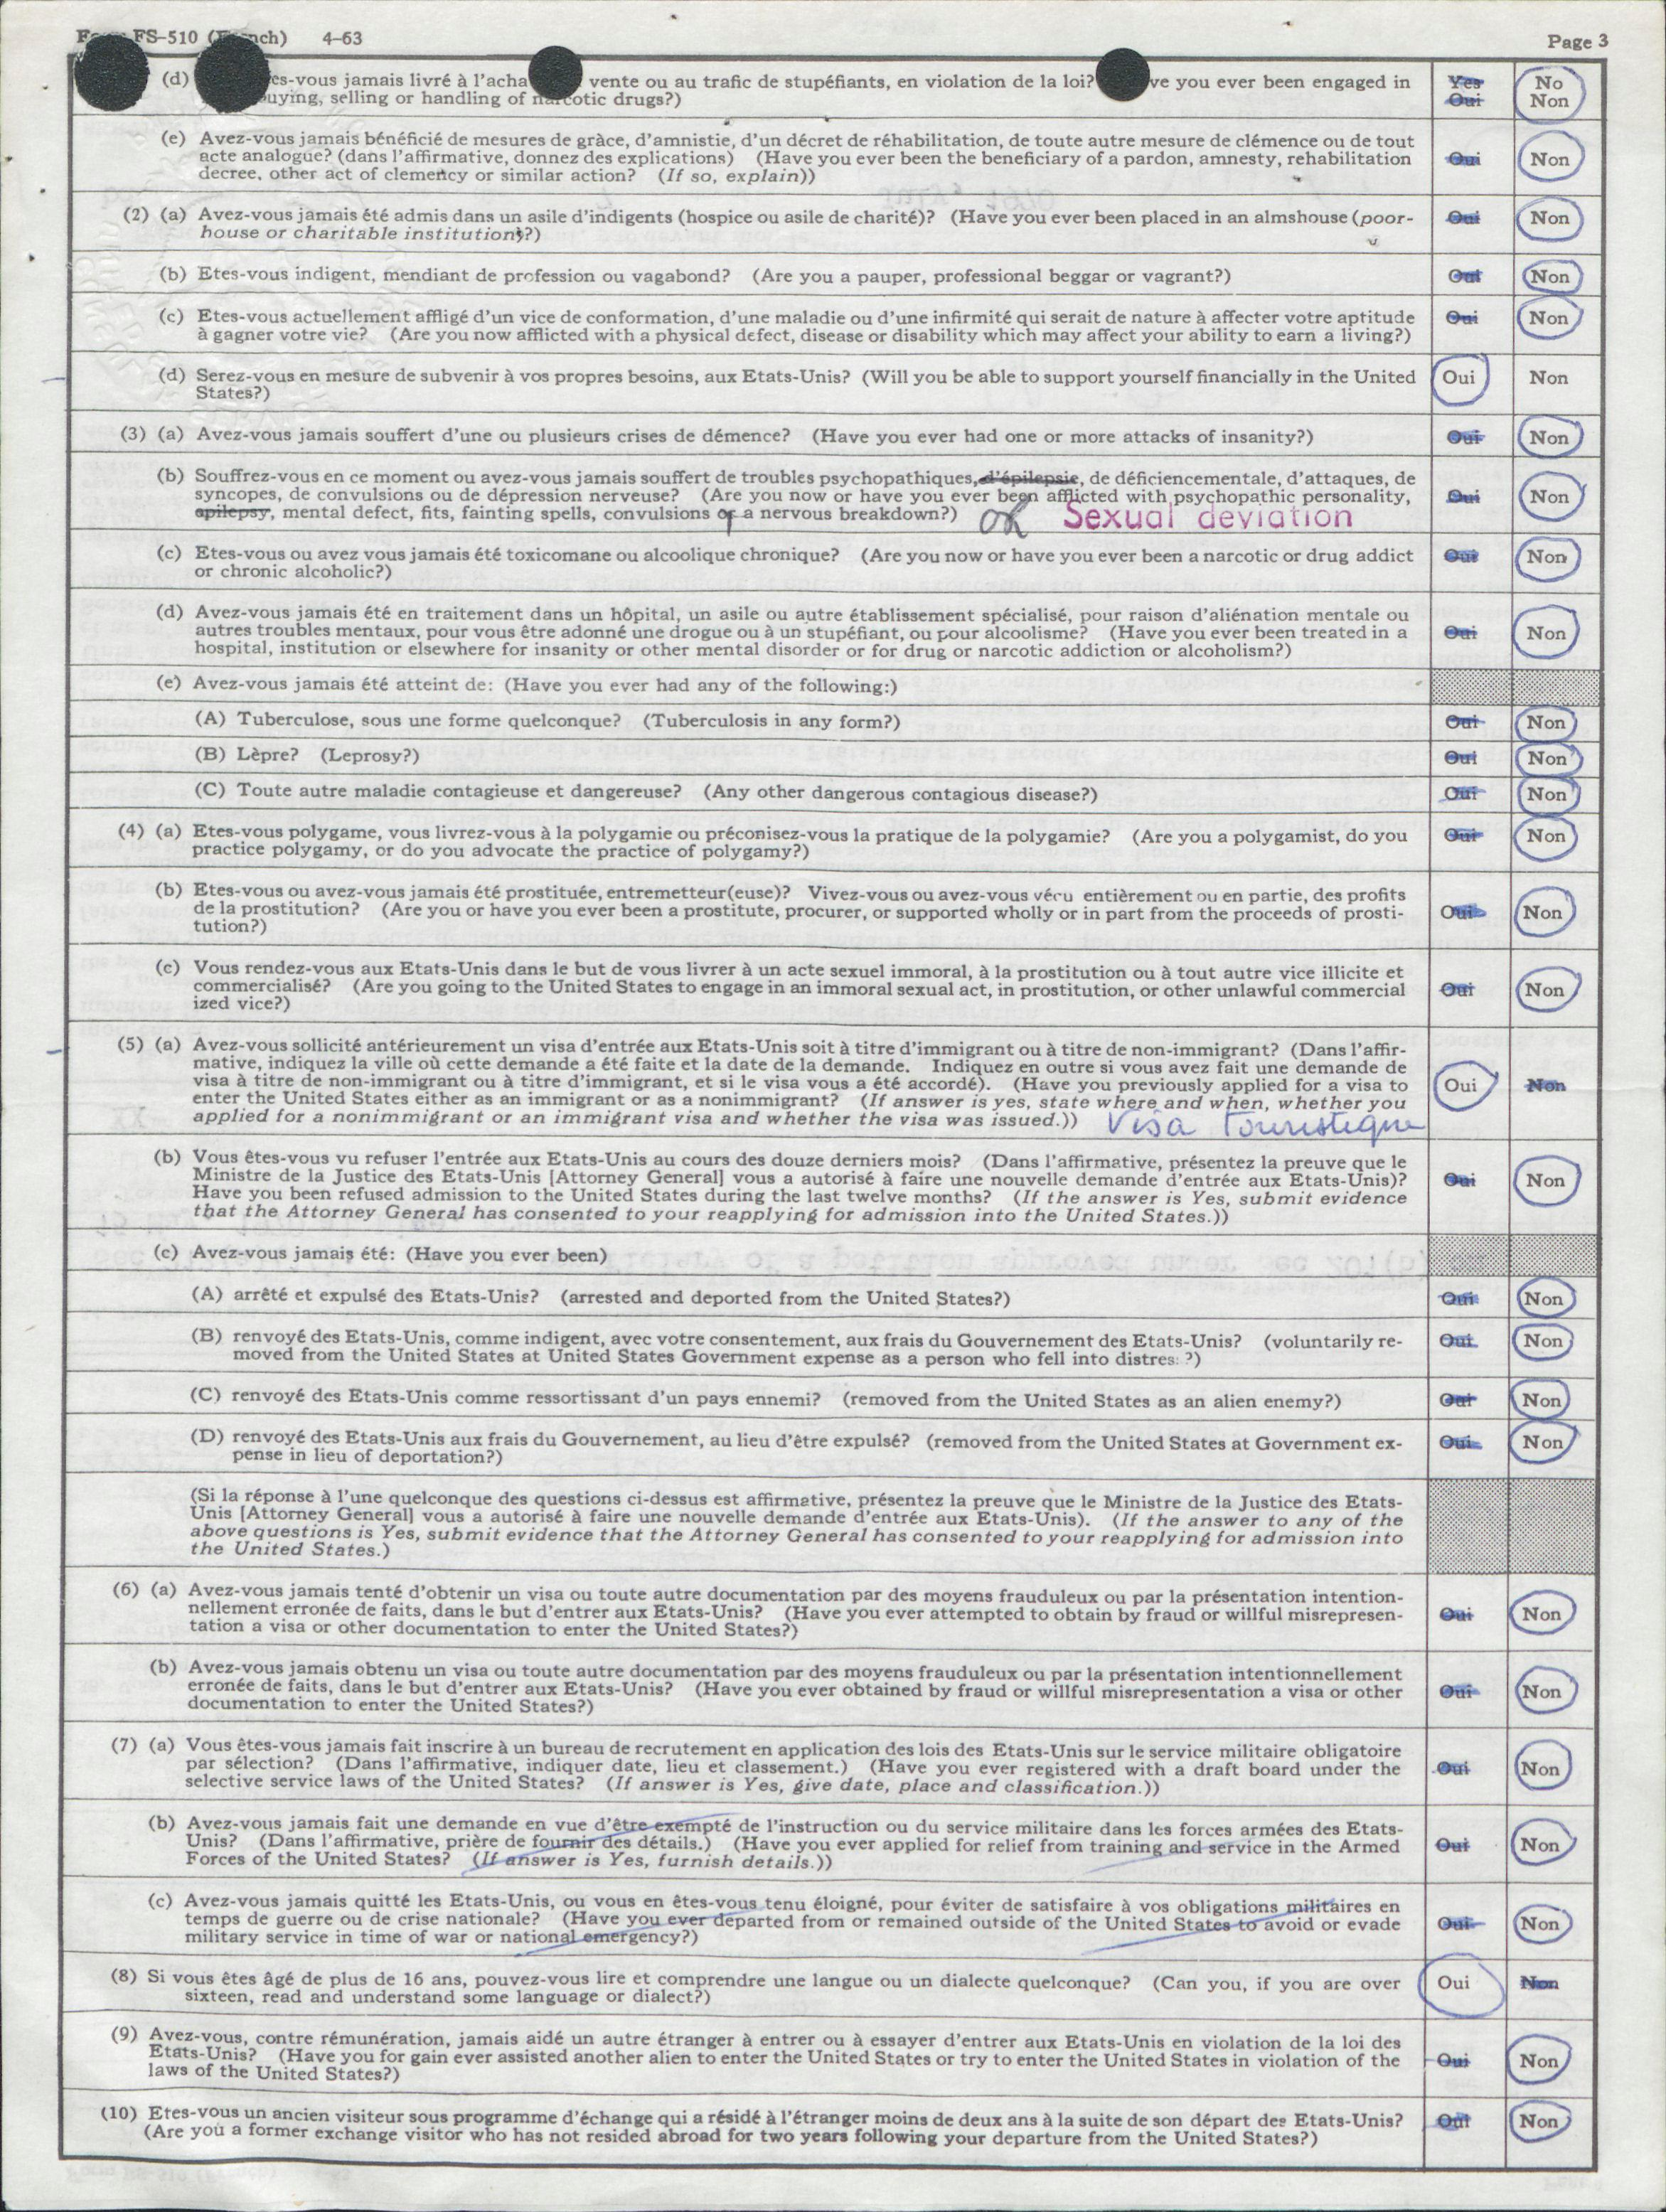 FS-510 ( nch) 4-63 Page 3
(d) es-vous jamais livré à l'acha vente ou au trafic de stupéfiants, en violation de la loi? ve you ever been engaged in Yes No
uying, selling or handling of narcotic drugs?) Oui Non
(e) Avez-vous jamais bénéficié de mesures de gràce, d'amnistie, d'un décret de réhabilitation, de toute autre mesure de clémence ou de tout
acte analogue? (dans l'affirmative, donnez des explications) (Have you ever been the beneficiary of a pardon, amnesty, rehabilitation Oui Non
decree, other act of clemency or similar action? (If so, explain))
(2) (a) Avez-vous jamais été admis dans un asile d'indigents (hospice ou asile de charité)? (Have you ever been placed in an almshouse (poor- Oui Non
house or charitable institution)?)
(b) Etes-vous indigent, mendiant de profession ou vagabond? (Are you a pauper, professional beggar or vagrant?) Oui Non
(c) Etes-vous actuellement affligé d'un vice de conformation, d'une maladie ou d'une infirmité qui serait de nature à affecter votre aptitude Oui Non
à gagner votre vie? (Are you now afflicted with a physical defect, disease or disability which may affect your ability to earn a living?)
(d) Serez-vous en mesure de subvenir à vos propres besoins, aux Etats-Unis? (Will you be able to support yourself financially in the United Oui Non
States?)
(3) (a) Avez-vous jamais souffert d'une ou plusieurs crises de démence? (Have you ever had one or more attacks of insanity?) Oui Non
(b) Souffrez-vous en ce moment ou avez-vous jamais souffert de troubles psychopathiques, d'épilepsie, de déficiencementale, d'attaques, de
syncopes, de convulsions ou de dépression nerveuse? (Are you now or have you ever been afflicted with psychopathic personality, Oui Non
epilepsy, mental defect, fits, fainting spells, convulsions or a nervous breakdown?) OR Sexual deviation
(c) Etes-vous ou avez vous jamais été toxicomane ou alcoolique chronique? (Are you now or have you ever been a narcotic or drug addict Oui Non
or chronic alcoholic?)
(d) Avez-vous jamais été en traitement dans un hôpital, un asile ou autre établissement spécialisé, pour raison d'aliénation mentale ou
autres troubles mentaux, pour vous être adonné une drogue ou à un stupéfiant, ou pour alcoolisme? (Have you ever been treated in a Oui Non
hospital, institution or elsewhere for insanity or other mental disorder or for drug or narcotic addiction or alcoholism?)
(e) Avez-vous jamais été atteint de: (Have you ever had any of the following:)
(A) Tuberculose, sous une forme quelconque? (Tuberculosis in any form?) Oui Non
(B) Lèpre? (Leprosy?) Oui Non
(C) Toute autre maladie contagieuse et dangereuse? (Any other dangerous contagious disease?) Oui Non
(4) (a) Etes-vous polygame, vous livrez-vous à la polygamie ou préconisez-vous la pratique de la polygamie? (Are you a polygamist, do you Oui Non
practice polygamy, or do you advocate the practice of polygamy?)
(b) Etes-vous ou avez-vous jamais été prostituée, entremetteur(euse)? Vivez-vous ou avez-vous vécu entièrement ou en partie, des profits
de la prostitution? (Are you or have you ever been a prostitute, procurer, or supported wholly or in part from the proceeds of prosti- Oui Non
tution?)
(c) Vous rendez-vous aux Etats-Unis dans le but de vous livrer à un acte sexuel immoral, à la prostitution ou à tout autre vice illicite et
commercialisé? (Are you going to the United States to engage in an immoral sexual act, in prostitution, or other unlawful commercial Oui Non
ized vice?)
(5) (a) Avez-vous sollicité antérieurement un visa d'entrée aux Etats-Unis soit à titre d'immigrant ou à titre de non-immigrant? (Dans l'affir-
mative, indiquez la ville où cette demande a été faite et la date de la demande. Indiquez en outre si vous avez fait une demande de
visa à titre de non-immigrant ou à titre d'immigrant, et si le visa vous a été accordé). (Have you previously applied for a visa to Oui Non
enter the United States either as an immigrant or as a nonimmigrant? (If answer is yes, state where and when, whether you
applied for a nonimmigrant or an immigrant visa and whether the visa was issued.)) Visa Touristique
(b) Vous êtes-vous vu refuser l'entrée aux Etats-Unis au cours des douze derniers mois? (Dans l'affirmative, présentez la preuve que le
Ministre de la Justice des Etats-Unis [Attorney General] vous a autorisé à faire une nouvelle demande d'entrée aux Etats-Unis)? Oui Non
Have you been refused admission to the United States during the last twelve months? (If the answer is Yes, submit evidence
that the Attorney General has consented to your reapplying for admission into the United States.))
(c) Avez-vous jamais été: (Have you ever been)
(A) arrêté et expulsé des Etats-Unis? (arrested and deported from the United States?) Oui Non
(B) renvoyé des Etats-Unis, comme indigent, avec votre consentement, aux frais du Gouvernement des Etats-Unis? (voluntarily re- Oui Non
moved from the United States at United States Government expense as a person who fell into distres: ?)
(C) renvoyé des Etats-Unis comme ressortissant d'un pays ennemi? (removed from the United States as an alien enemy?) Oui Non
(D) renvoyé des Etats-Unis aux frais du Gouvernement, au lieu d'être expulsé? (removed from the United States at Government ex- Oui Non
pense in lieu of deportation?)
(Si la réponse à l'une quelconque des questions ci-dessus est affirmative, présentez la preuve que le Ministre de la Justice des Etats-
Unis [Attorney General] vous a autorisé à faire une nouvelle demande d'entrée aux Etats-Unis). (If the answer to any of the
above questions is Yes, submit evidence that the Attorney General has consented to your reapplying for admission into
the United States.)
(6) (a) Avez-vous jamais tenté d'obtenir un visa ou toute autre documentation par des moyens frauduleux ou par la présentation intention-
nellement erronée de faits, dans le but d'entrer aux Etats-Unis? (Have you ever attempted to obtain by fraud or willful misrepresen- Oui Non
tation a visa or other documentation to enter the United States?)
(b) Avez-vous jamais obtenu un visa ou toute autre documentation par des moyens frauduleux ou par la présentation intentionnellement
erronée de faits, dans le but d'entrer aux Etats-Unis? (Have you ever obtained by fraud or willful misrepresentation a visa or other Oui Non
documentation to enter the United States?)
(7) (a) Vous êtes-vous jamais fait inscrire à un bureau de recrutement en application des lois des Etats-Unis sur le service militaire obligatoire
par sélection? (Dans l'affirmative, indiquer date, lieu et classement.) (Have you ever registered with a draft board under the Oui Non
selective service laws of the United States? (If answer is Yes, give date, place and classification.))
(b) Avez-vous jamais fait une demande en vue d'être exempté de l'instruction ou du service militaire dans les forces armées des Etats-
Unis? (Dans l'affirmative, prière de fournir des détails.) (Have you ever applied for relief from training and service in the Armed Oui Non
Forces of the United States? (If answer is Yes, furnish details.))
(c) Avez-vous jamais quitté les Etats-Unis, ou vous en êtes-vous tenu éloigné, pour éviter de satisfaire à vos obligations militaires en
temps de guerre ou de crise nationale? (Have you ever departed from or remained outside of the United States to avoid or evade Oui Non
military service in time of war or national emergency?)
(8) Si vous êtes âgé de plus de 16 ans, pouvez-vous lire et comprendre une langue ou un dialecte quelconque? (Can you, if you are over Oui Non
sixteen, read and understand some language or dialect?)
(9) Avez-vous, contre rémunération, jamais aidé un autre étranger à entrer ou à essayer d'entrer aux Etats-Unis en violation de la loi des
Etats-Unis? (Have you for gain ever assisted another alien to enter the United States or try to enter the United States in violation of the Oui Non
laws of the United States?)
(10) Etes-vous un ancien visiteur sous programme d'échange qui a résidé à l'étranger moins de deux ans à la suite de son départ des Etats-Unis? Oui Non
(Are you a former exchange visitor who has not resided abroad for two years following your departure from the United States?)